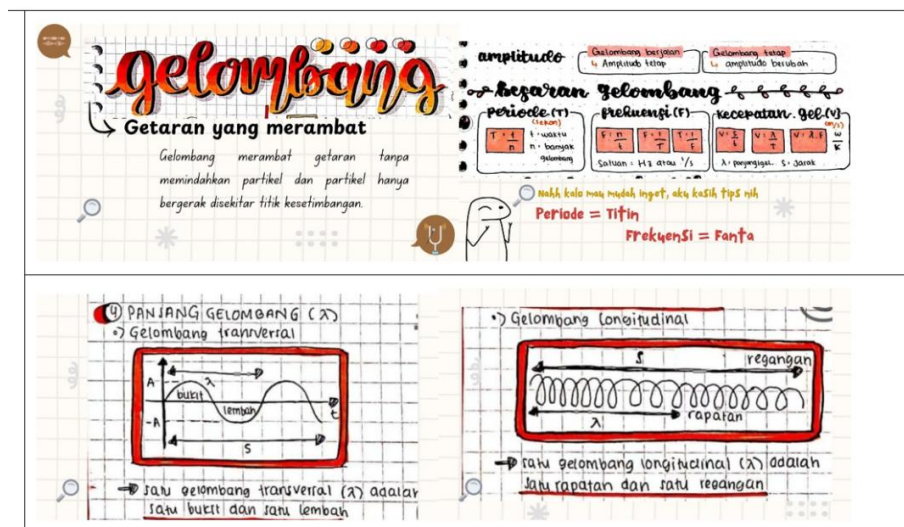 gelombang
Getaran yang merambat
Gelombang merambat getaran tanpa
memindahkan partikel dan partikel hanya
bergerak disekitar titik kesetimbangan.
amplitudo
Gelombang berjalan
↳ Amplitudo tetap
Gelombang tetap
↳ amplitudo berubah
besaran gelombang
Periode (T)
(sekon)
T = t/n
t = waktu
n = banyak
gelombang
frekuensi (F)
F = n/t
F = 1/T
T = 1/F
Satuan = Hz atau 1/s
kecepatan. gel. (V)
(m/s)
V = s/t
V = λ/T
V = λ.F
w/k
λ = panjang gel. s = Jarak
Nahh kalo mau mudah inget, aku kasih tips nih
Periode = Titin
Frekuensi = Fanta
4 PANJANG GELOMBANG (λ)
•) Gelombang tranversal
A
λ
bukit
lembah
t
-A
S
→ satu gelombang transversal (λ) adalah
satu bukit dan satu lembah
•) Gelombang Longitudinal
S
regangan
λ
rapatan
→ satu gelombang longitudinal (λ) adalah
satu rapatan dan satu regangan